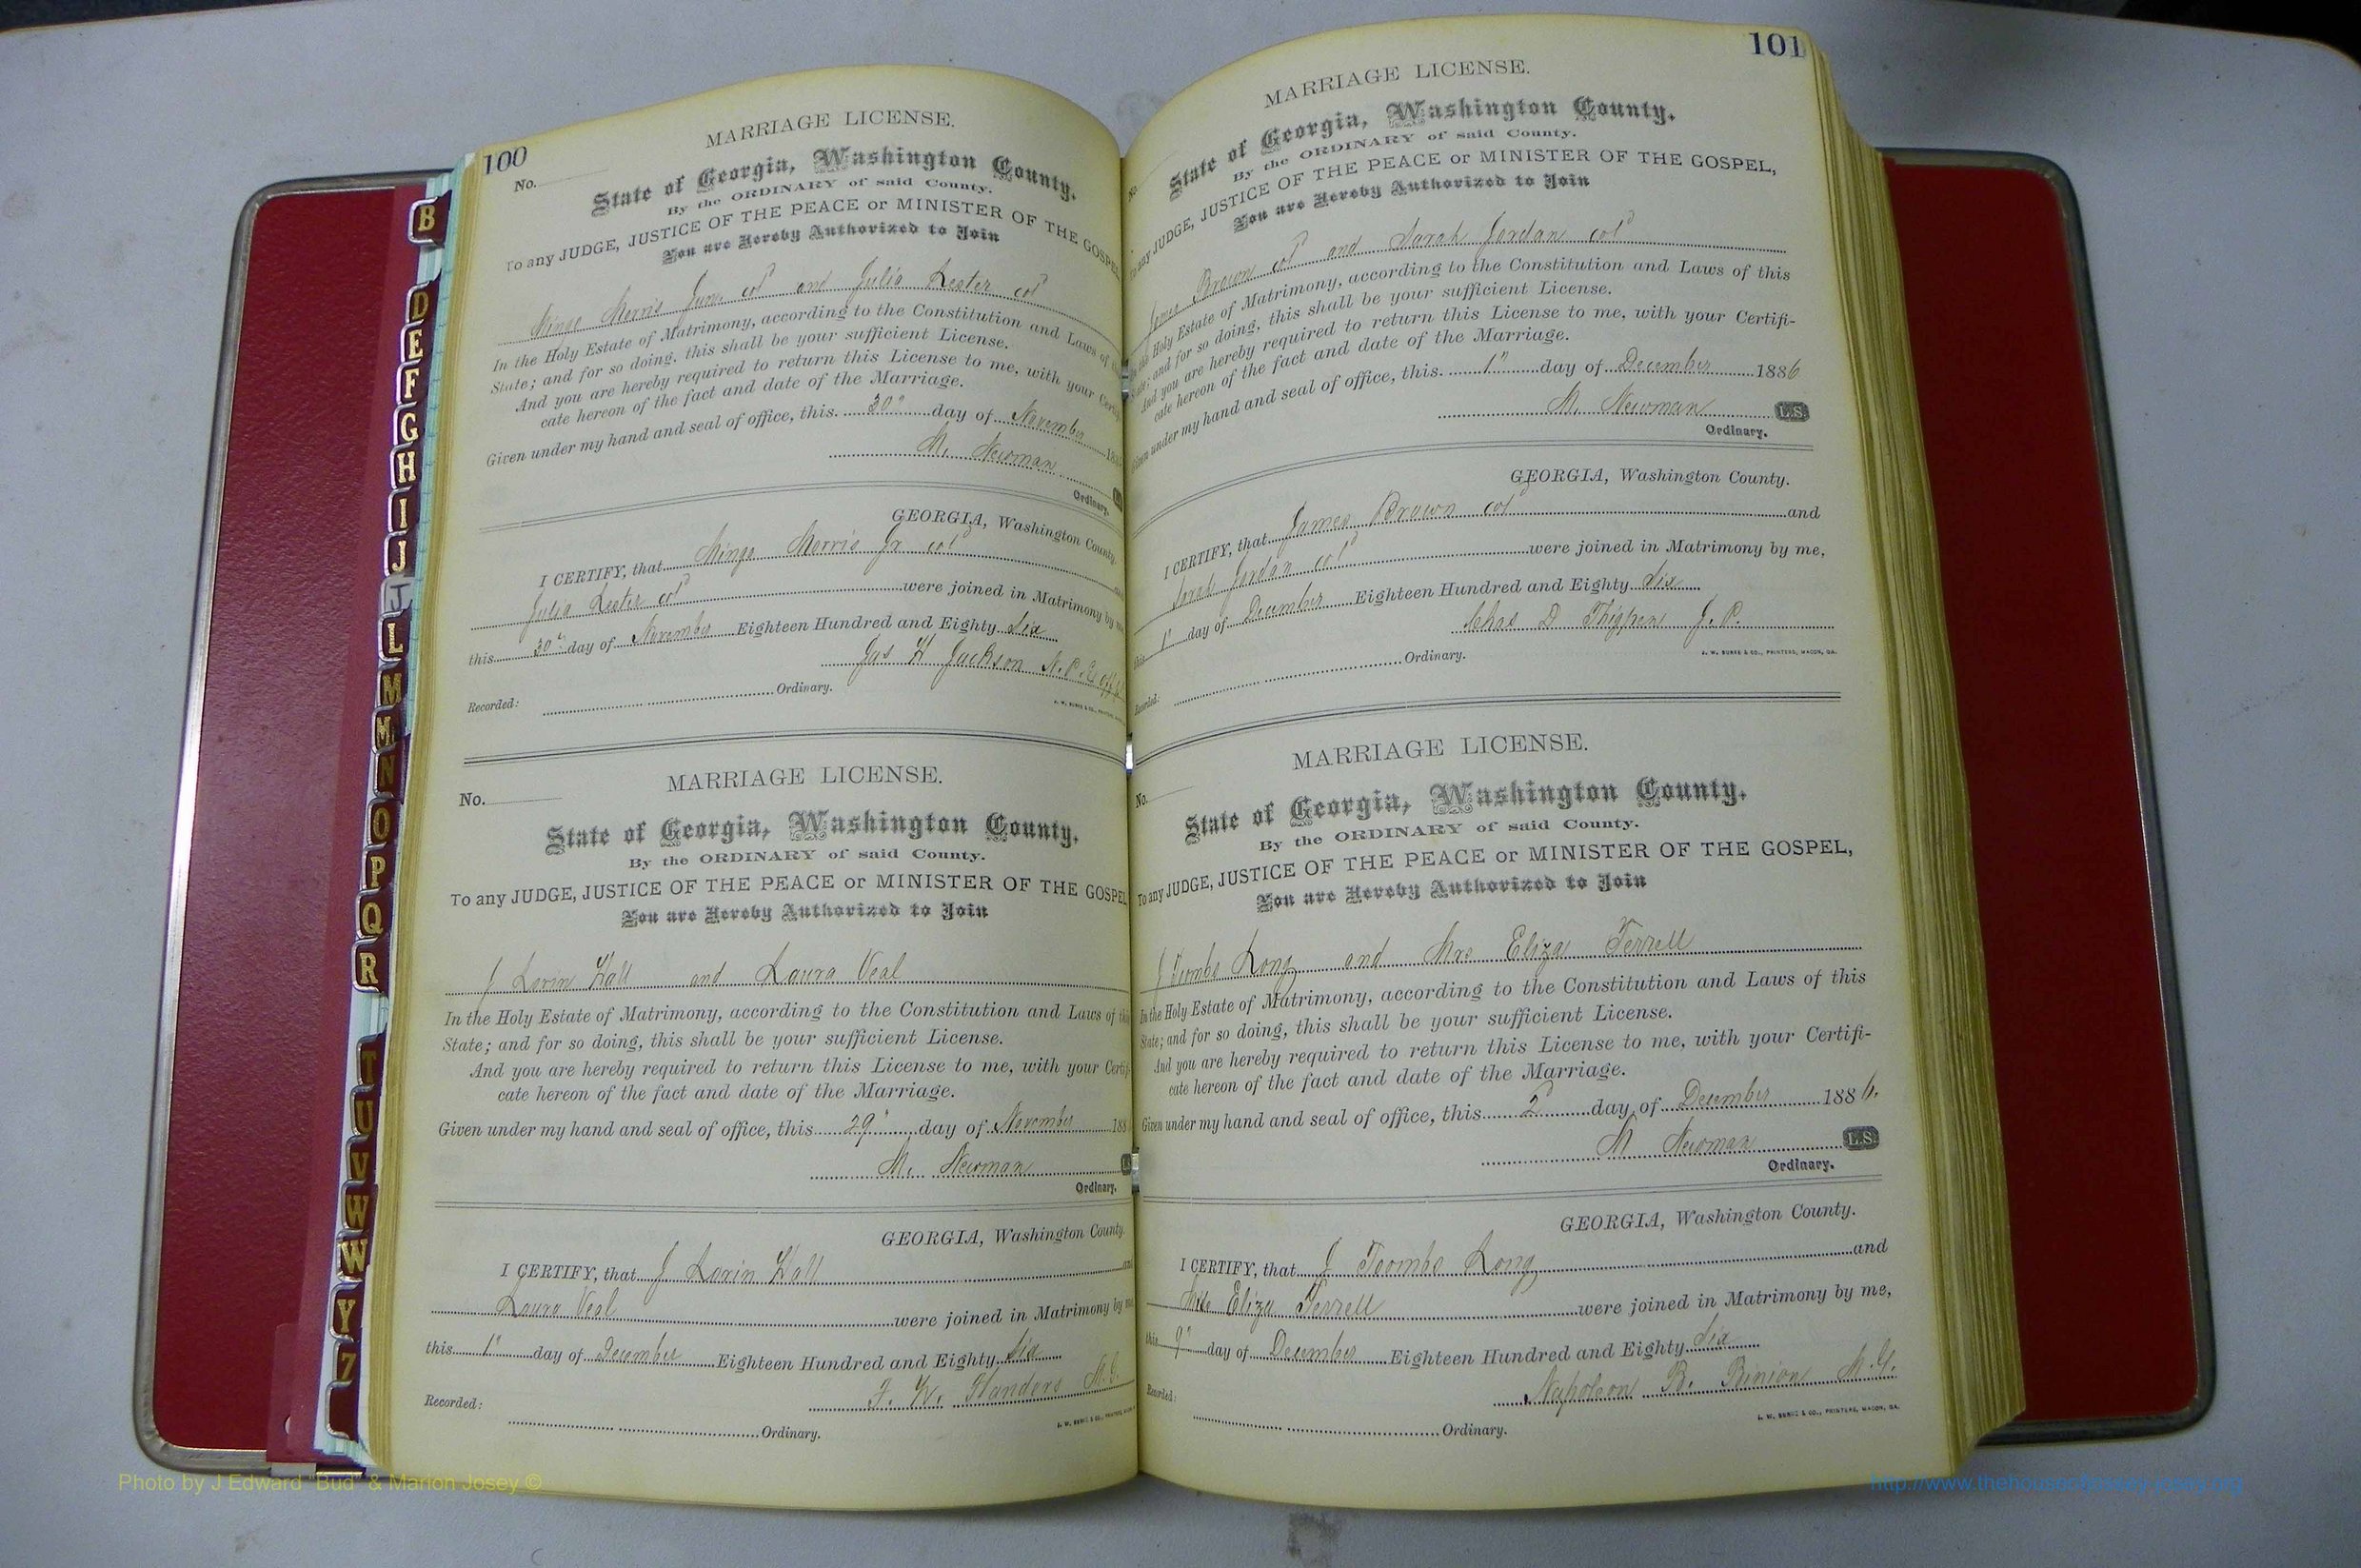 100
No.
MARRIAGE LICENSE.
State of Georgia, Washington County.
By the ORDINARY of said County.
To any JUDGE, JUSTICE OF THE PEACE or MINISTER OF THE GOSPEL
You are Hereby Authorized to Join
Mingo Morris Junr cold and Julia Lester cold
In the Holy Estate of Matrimony, according to the Constitution and Laws of
State; and for so doing, this shall be your sufficient License.
And you are hereby required to return this License to me, with your Certifi
cate hereon of the fact and date of the Marriage.
Given under my hand and seal of office, this 30" day of November 188
M. Newman
Ordinary.
GEORGIA, Washington County.
I CERTIFY, that Mingo Morris Jr cold
Julia Lester cold were joined in Matrimony by
this 30" day of November Eighteen Hundred and Eighty Six
Jas H Jackson N.P.
Recorded: Ordinary.
J. W. BURKE & CO., PRINTERS,
MARRIAGE LICENSE.
No.
State of Georgia, Washington County.
By the ORDINARY of said County.
To any JUDGE, JUSTICE OF THE PEACE or MINISTER OF THE GOSPEL
You are Hereby Authorized to Join
J Lorin Hall and Laura Veal
In the Holy Estate of Matrimony, according to the Constitution and Laws of
State; and for so doing, this shall be your sufficient License.
And you are hereby required to return this License to me, with your Certifi
cate hereon of the fact and date of the Marriage.
Given under my hand and seal of office, this 29" day of November 188
M. Newman
Ordinary.
GEORGIA, Washington County.
I CERTIFY, that J Lorin Hall and
Laura Veal were joined in Matrimony by me
this 1" day of December Eighteen Hundred and Eighty Six
F. W. Flanders M.G.
Recorded: Ordinary.
J. W. BURKE & CO., PRINTERS,
101
MARRIAGE LICENSE.
No.
State of Georgia, Washington County.
By the ORDINARY of said County.
To any JUDGE, JUSTICE OF THE PEACE or MINISTER OF THE GOSPEL,
You are Hereby Authorized to Join
James Brown cold and Sarah Jordan cold
In the Holy Estate of Matrimony, according to the Constitution and Laws of this
State; and for so doing, this shall be your sufficient License.
And you are hereby required to return this License to me, with your Certifi-
cate hereon of the fact and date of the Marriage.
Given under my hand and seal of office, this 1" day of December 1886
M. Newman L.S.
Ordinary.
GEORGIA, Washington County.
I CERTIFY, that James Brown cold and
Sarah Jordan cold were joined in Matrimony by me,
this 1" day of December Eighteen Hundred and Eighty Six
Chas D Thigpen J.P.
Recorded: Ordinary.
J. W. BURKE & CO., PRINTERS, MACON, GA.
MARRIAGE LICENSE.
No.
State of Georgia, Washington County.
By the ORDINARY of said County.
To any JUDGE, JUSTICE OF THE PEACE or MINISTER OF THE GOSPEL,
You are Hereby Authorized to Join
J Toombs Long and Mrs Eliza Terrell
In the Holy Estate of Matrimony, according to the Constitution and Laws of this
State; and for so doing, this shall be your sufficient License.
And you are hereby required to return this License to me, with your Certifi-
cate hereon of the fact and date of the Marriage.
Given under my hand and seal of office, this day of December 1886.
M Newman L.S.
Ordinary.
GEORGIA, Washington County.
I CERTIFY, that J Toombs Long and
Eliza Terrell were joined in Matrimony by me,
this 9" day of December Eighteen Hundred and Eighty Six
Napoleon B. Binion M.G.
Recorded: Ordinary.
J. W. BURKE & CO., PRINTERS, MACON, GA.
B
D
E
F
G
H
I
J
J
L
M
M
N
O
P
Q
R
T
U
V
W
W
Y
Z
Photo by J Edward "Bud" & Marion Josey ©